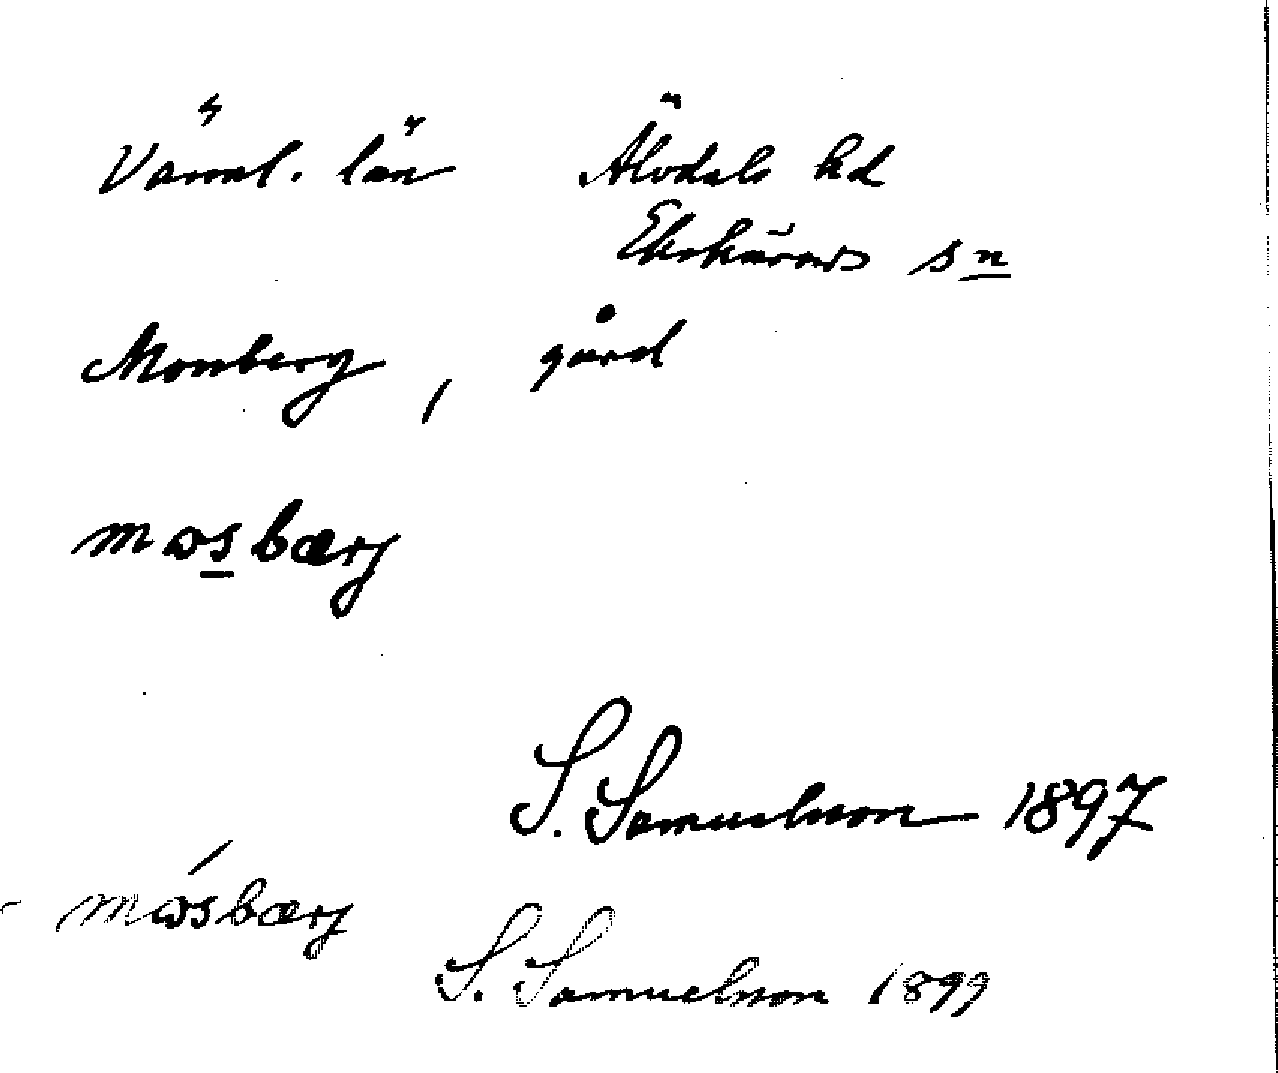 Värml. län Älvdals hd
Ekshärads sn
Monberg, gård
mɷsbærj
S. Samuelsson 1897
mɷ́sbærj
S. Samuelsson 1899